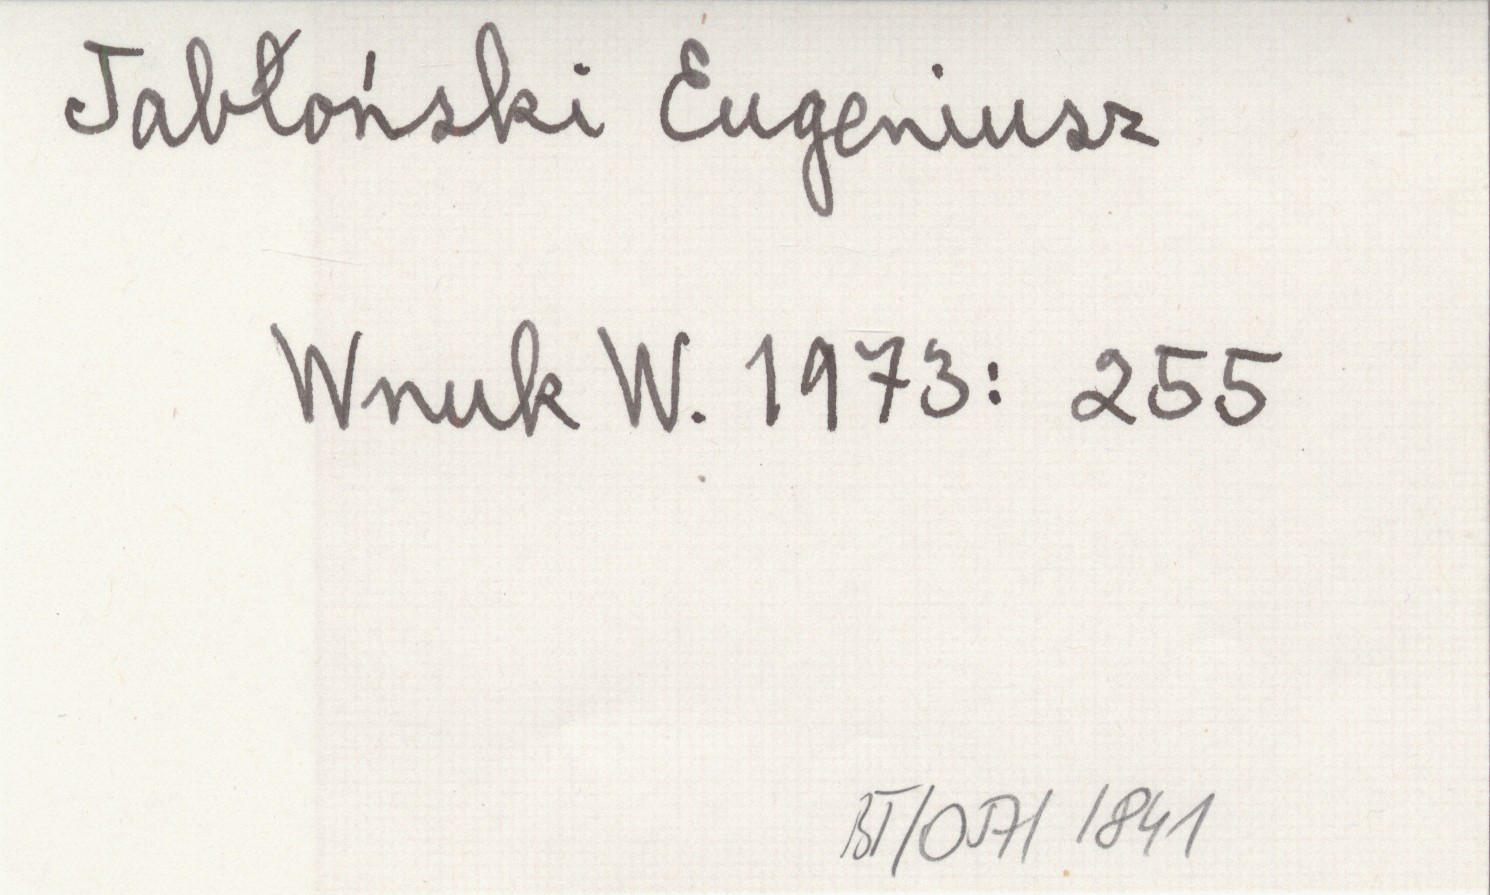 Jabłoński Eugeniusz
Wnuk W. 1973: 255
BT/057/1841